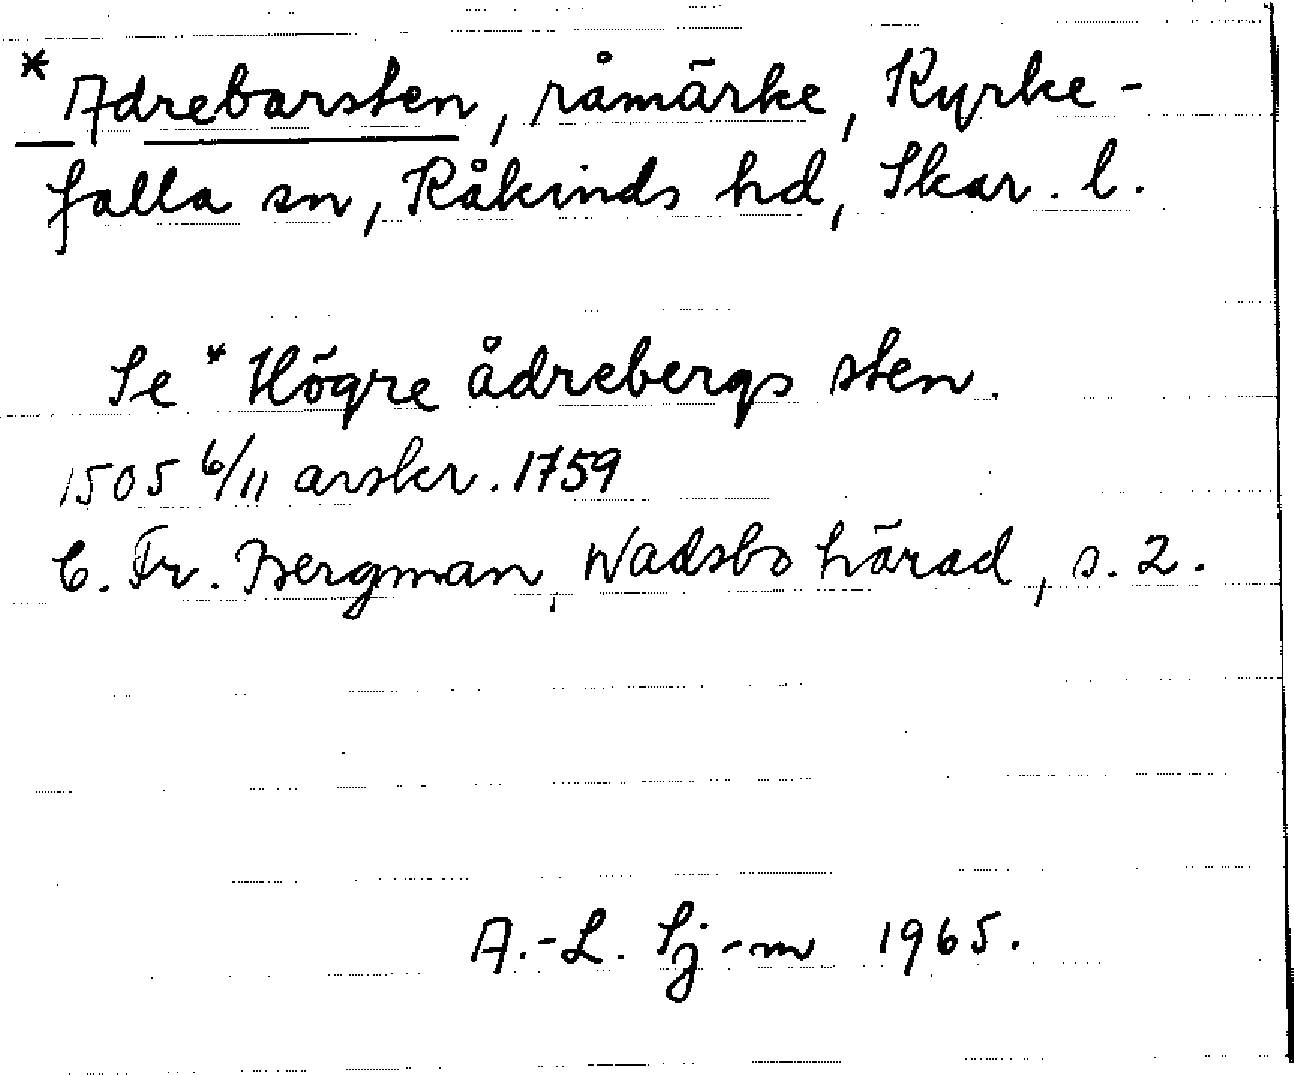 * Adrebarsten, råmärke, Kyrke-
falla sn, Kåkinds hd, Skar. l.
Se * Högre ådrebergs sten.
1505 6/11 avskr. 1759
C. Fr. Bergman, Wadsbo härad, s. 2.
A.-L. Sj-m 1965.